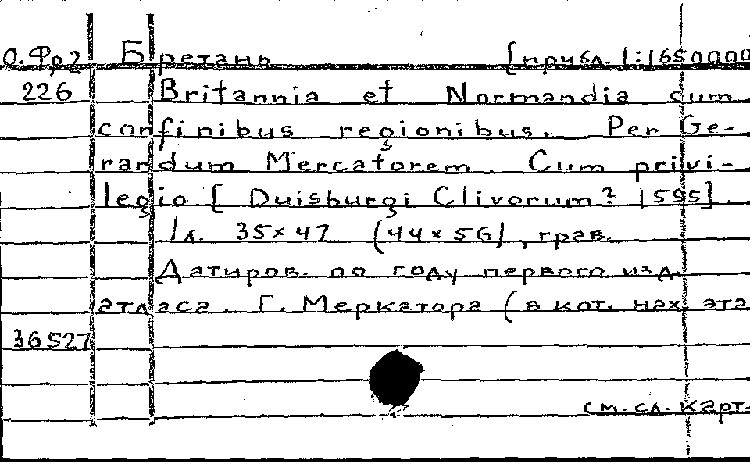 О.Фр2 Бретань [прибл. 1:1650000
226 Britannia et Normandia cum
confinibus regionibus. Per Ge-
randum Mercatorem. Cum privi-
legio [Duisburgi Clivorum? 1595]
1л. 35×47 (44×56), грав.
Датиров. по году первого изд.
атласа. Г. Меркатора (в кот. нах. эта
36527
см. сл. карт.